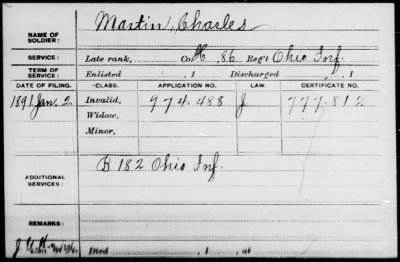 NAME OF SOLDIER: Martin, Charles
SERVICE: Late rank, Co. K, 86 Reg't Ohio Inf.
TERM OF SERVICE: Enlisted , 1 Discharged , 1
DATE OF FILING. —CLASS. APPLICATION NO. LAW. CERTIFICATE NO.
1891 Jan. 2 Invalid, 974.488 J 777.812
Widow,
Minor,
ADDITIONAL SERVICES: B 182 Ohio Inf.
REMARKS:
Died , 1 , at